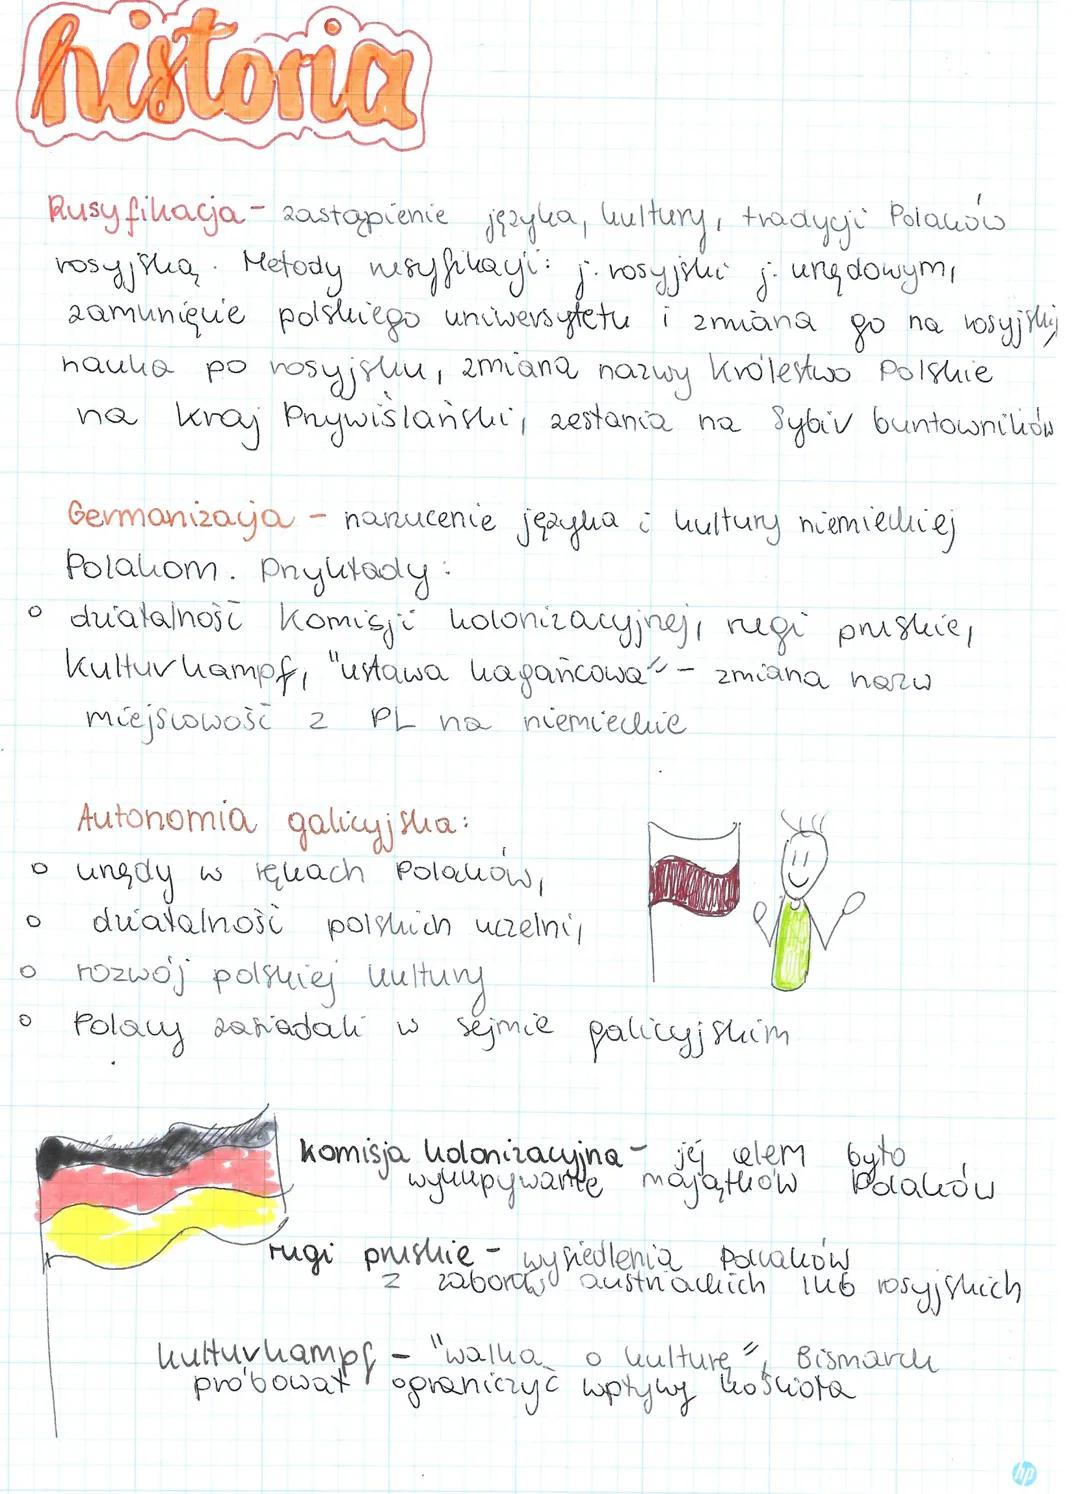 historia
Rusyfikacja - zastąpienie języka, kultury, tradycji Polaków
rosyjską. Metody rusyfikacji: j. rosyjski j. urzędowym,
zamknięcie polskiego uniwersytetu i zmiana go na rosyjski,
nauka po rosyjsku, zmiana nazwy Królestwo Polskie
na kraj Przywiślański, zesłania na Sybir buntowników
Germanizacja - narzucenie języka i kultury niemieckiej
Polakom. Przykłady:
o działalność Komisji kolonizacyjnej, rugi pruskie,
Kulturkampf, "ustawa kagańcowa" - zmiana nazw
miejscowość z PL na niemieckie
Autonomia galicyjska:
o urzędy w rękach Polaków,
o działalność polskich uczelni,
o rozwój polskiej kultury
o Polacy zasiadali w sejmie galicyjskim
Komisja kolonizacyjna - jej celem było
wykupywanie majątków Polaków
rugi pruskie - wysiedlenia Polaków
z zaborów austriackich lub rosyjskich
kulturkampf - "walka o kulturę", Bismarck
próbował ograniczyć wpływy kościoła
hp